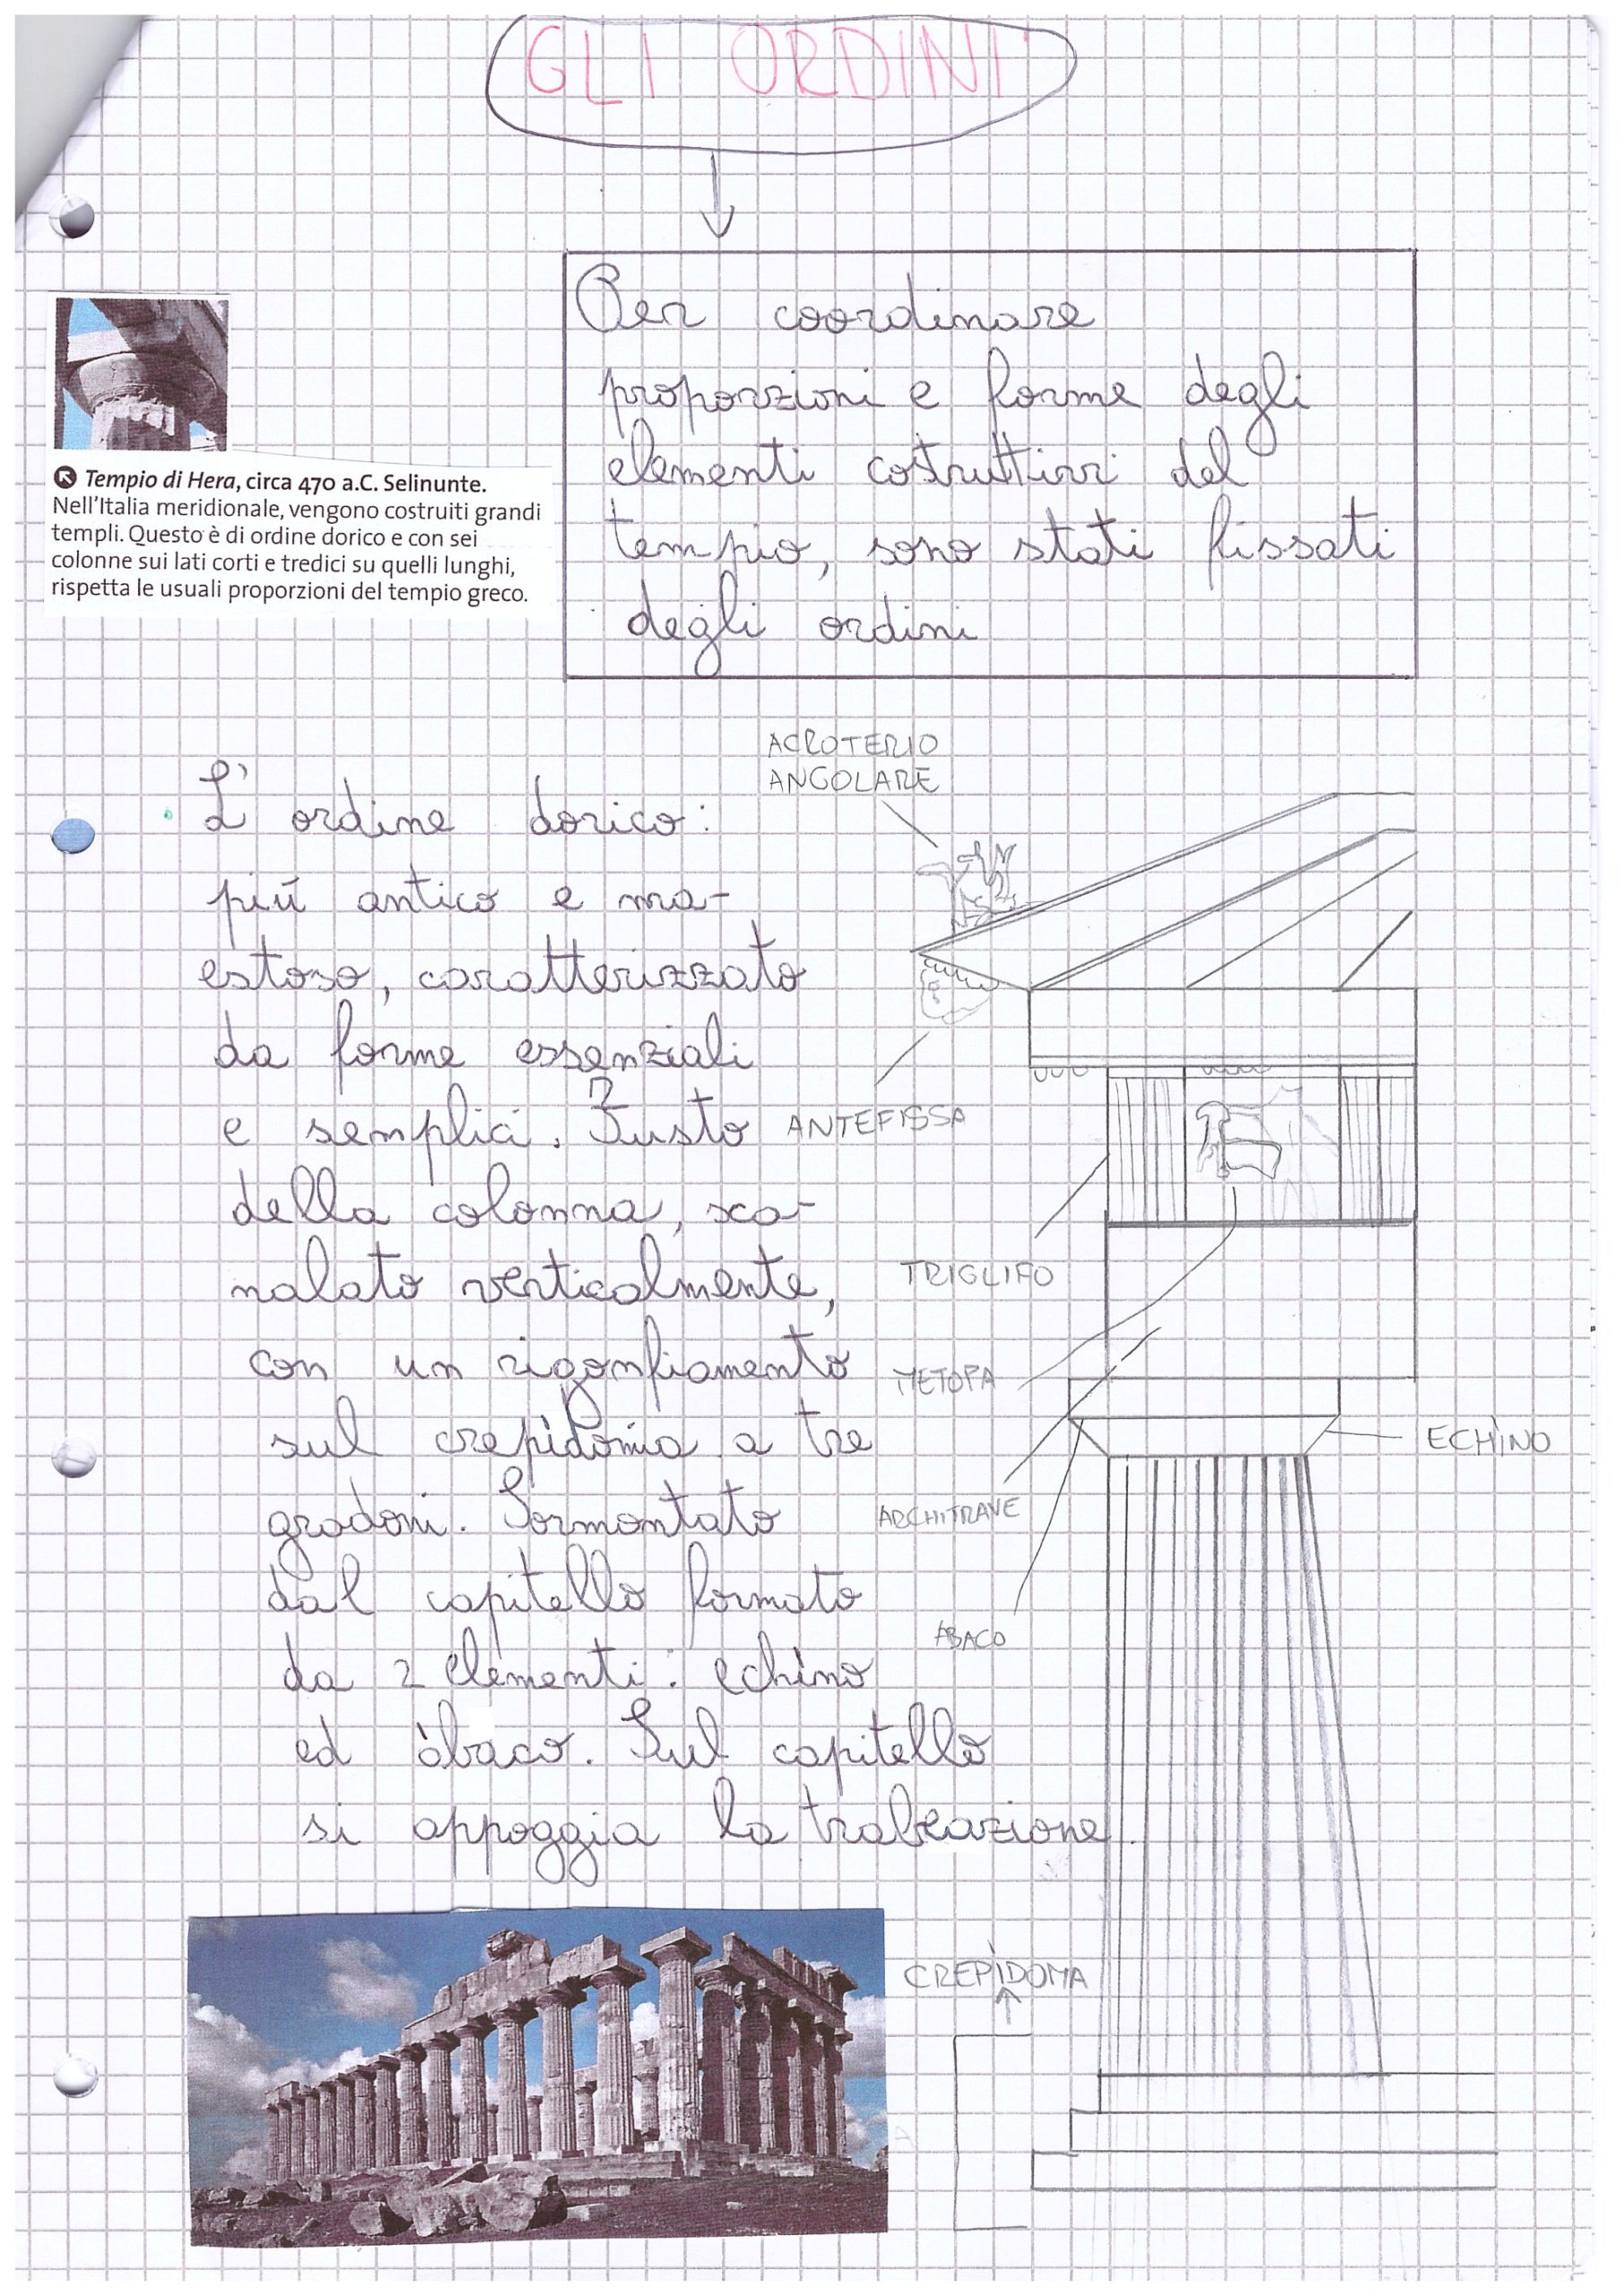 GLI ORDINI
Per coordinare
proporzioni e forme degli
elementi costruttivi del
tempio, sono stati fissati
degli ordini
Tempio di Hera, circa 470 a.C. Selinunte.
Nell'Italia meridionale, vengono costruiti grandi
templi. Questo è di ordine dorico e con sei
colonne sui lati corti e tredici su quelli lunghi,
rispetta le usuali proporzioni del tempio greco.
L'ordine dorico:
più antico e ma-
estoso, caratterizzato
da forme essenziali
e semplici. Fusto
della colonna, sca-
nalato verticalmente,
con un rigonfiamento
sul crepìdoma a tre
gradoni. Sormontato
dal capitello formato
da 2 elementi: echìno
ed àbaco. Sul capitello
si appoggia la trabeazione.
ACROTERIO
ANGOLARE
ANTEFISSA
TRIGLIFO
METOPA
ECHÌNO
ARCHITRAVE
ABACO
CREPÌDOMA